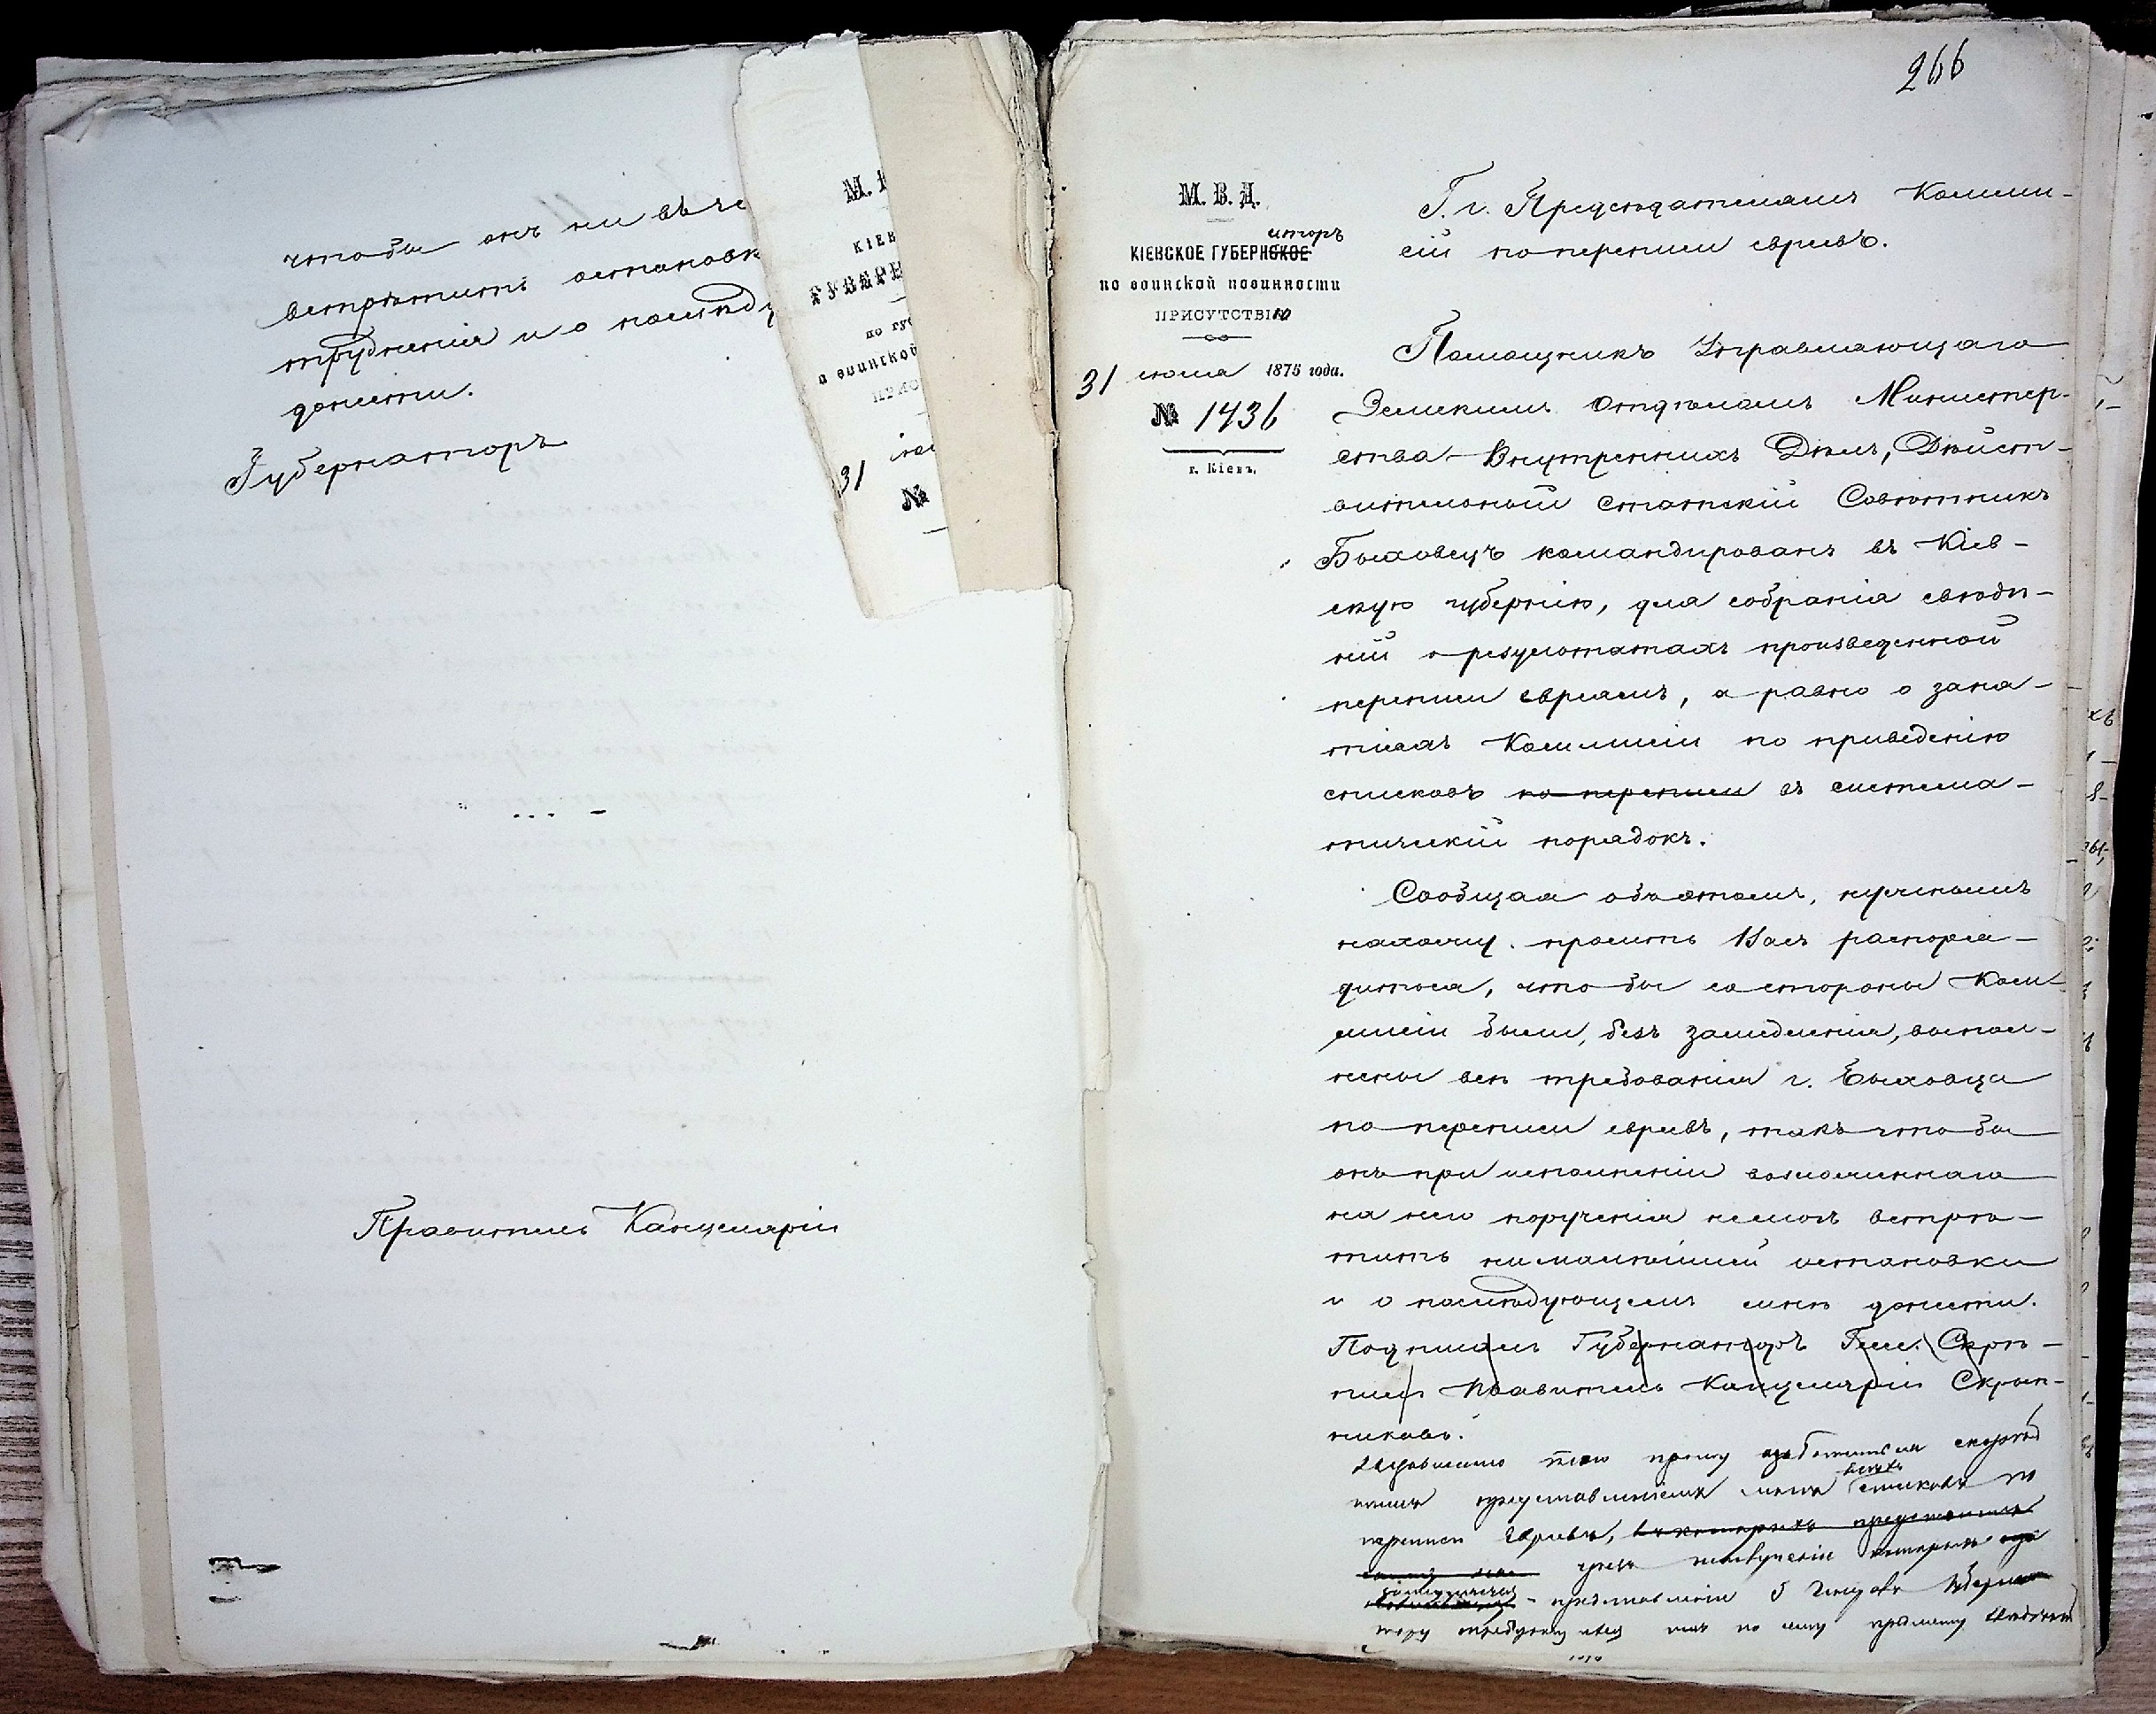 чтобы онъ ни въ че
встрѣтить остановк
трудненія и о послѣд
донести.
Губернаторъ
Правитель Канцеляріи
М.
КІЕВ
ГУБЕРН
по гу
о воинской
ПРИС
31
№
266
М. В. Д.
аторъ
КІЕВСКОЕ ГУБЕРНСКОЕ
по воинской повинности
ПРИСУТСТВІЮ
31 іюля 1875 года.
№ 1436
г. Кіевъ.
Г. г. Предсѣдателямъ Коммис-
сій по переписи евреевъ.
Помощникъ Управляющаго
Земскимъ Отдѣломъ Министер-
ства Внутреннихъ Дѣлъ, Дѣйст-
вительный Статскій Совѣтникъ
Быховецъ командированъ въ Кіев-
скую губернію, для собранія свѣдѣ-
ній о результатахъ произведенной
переписи евреямъ, а равно о заня-
тіяхъ Коммисіи по приведенію
списковъ по переписи въ система-
тическій порядокъ.
Сообщая объ этомъ, нужнымъ
нахожу просить Васъ распоря-
диться, что бы со стороны Ком-
мисіи были, безъ замедленія, выпол-
нены всѣ требованія г. Быховца
по переписи евреевъ, такъ что бы
онъ при исполненіи возложеннаго
на него порученія не могъ встрѣ-
тить ни малѣйшей остановки
и о послѣдующемъ мнѣ донести.
Подписалъ Губернаторъ Гессе. Скрѣ-
пилъ Правитель Канцеляріи Скрып-
никовъ.
прошу скорѣй
представленіемъ списковъ по
переписи евреевъ, въ которыхъ
чрезъ которыхъ
представленіи Губерна
тору по сему предмету